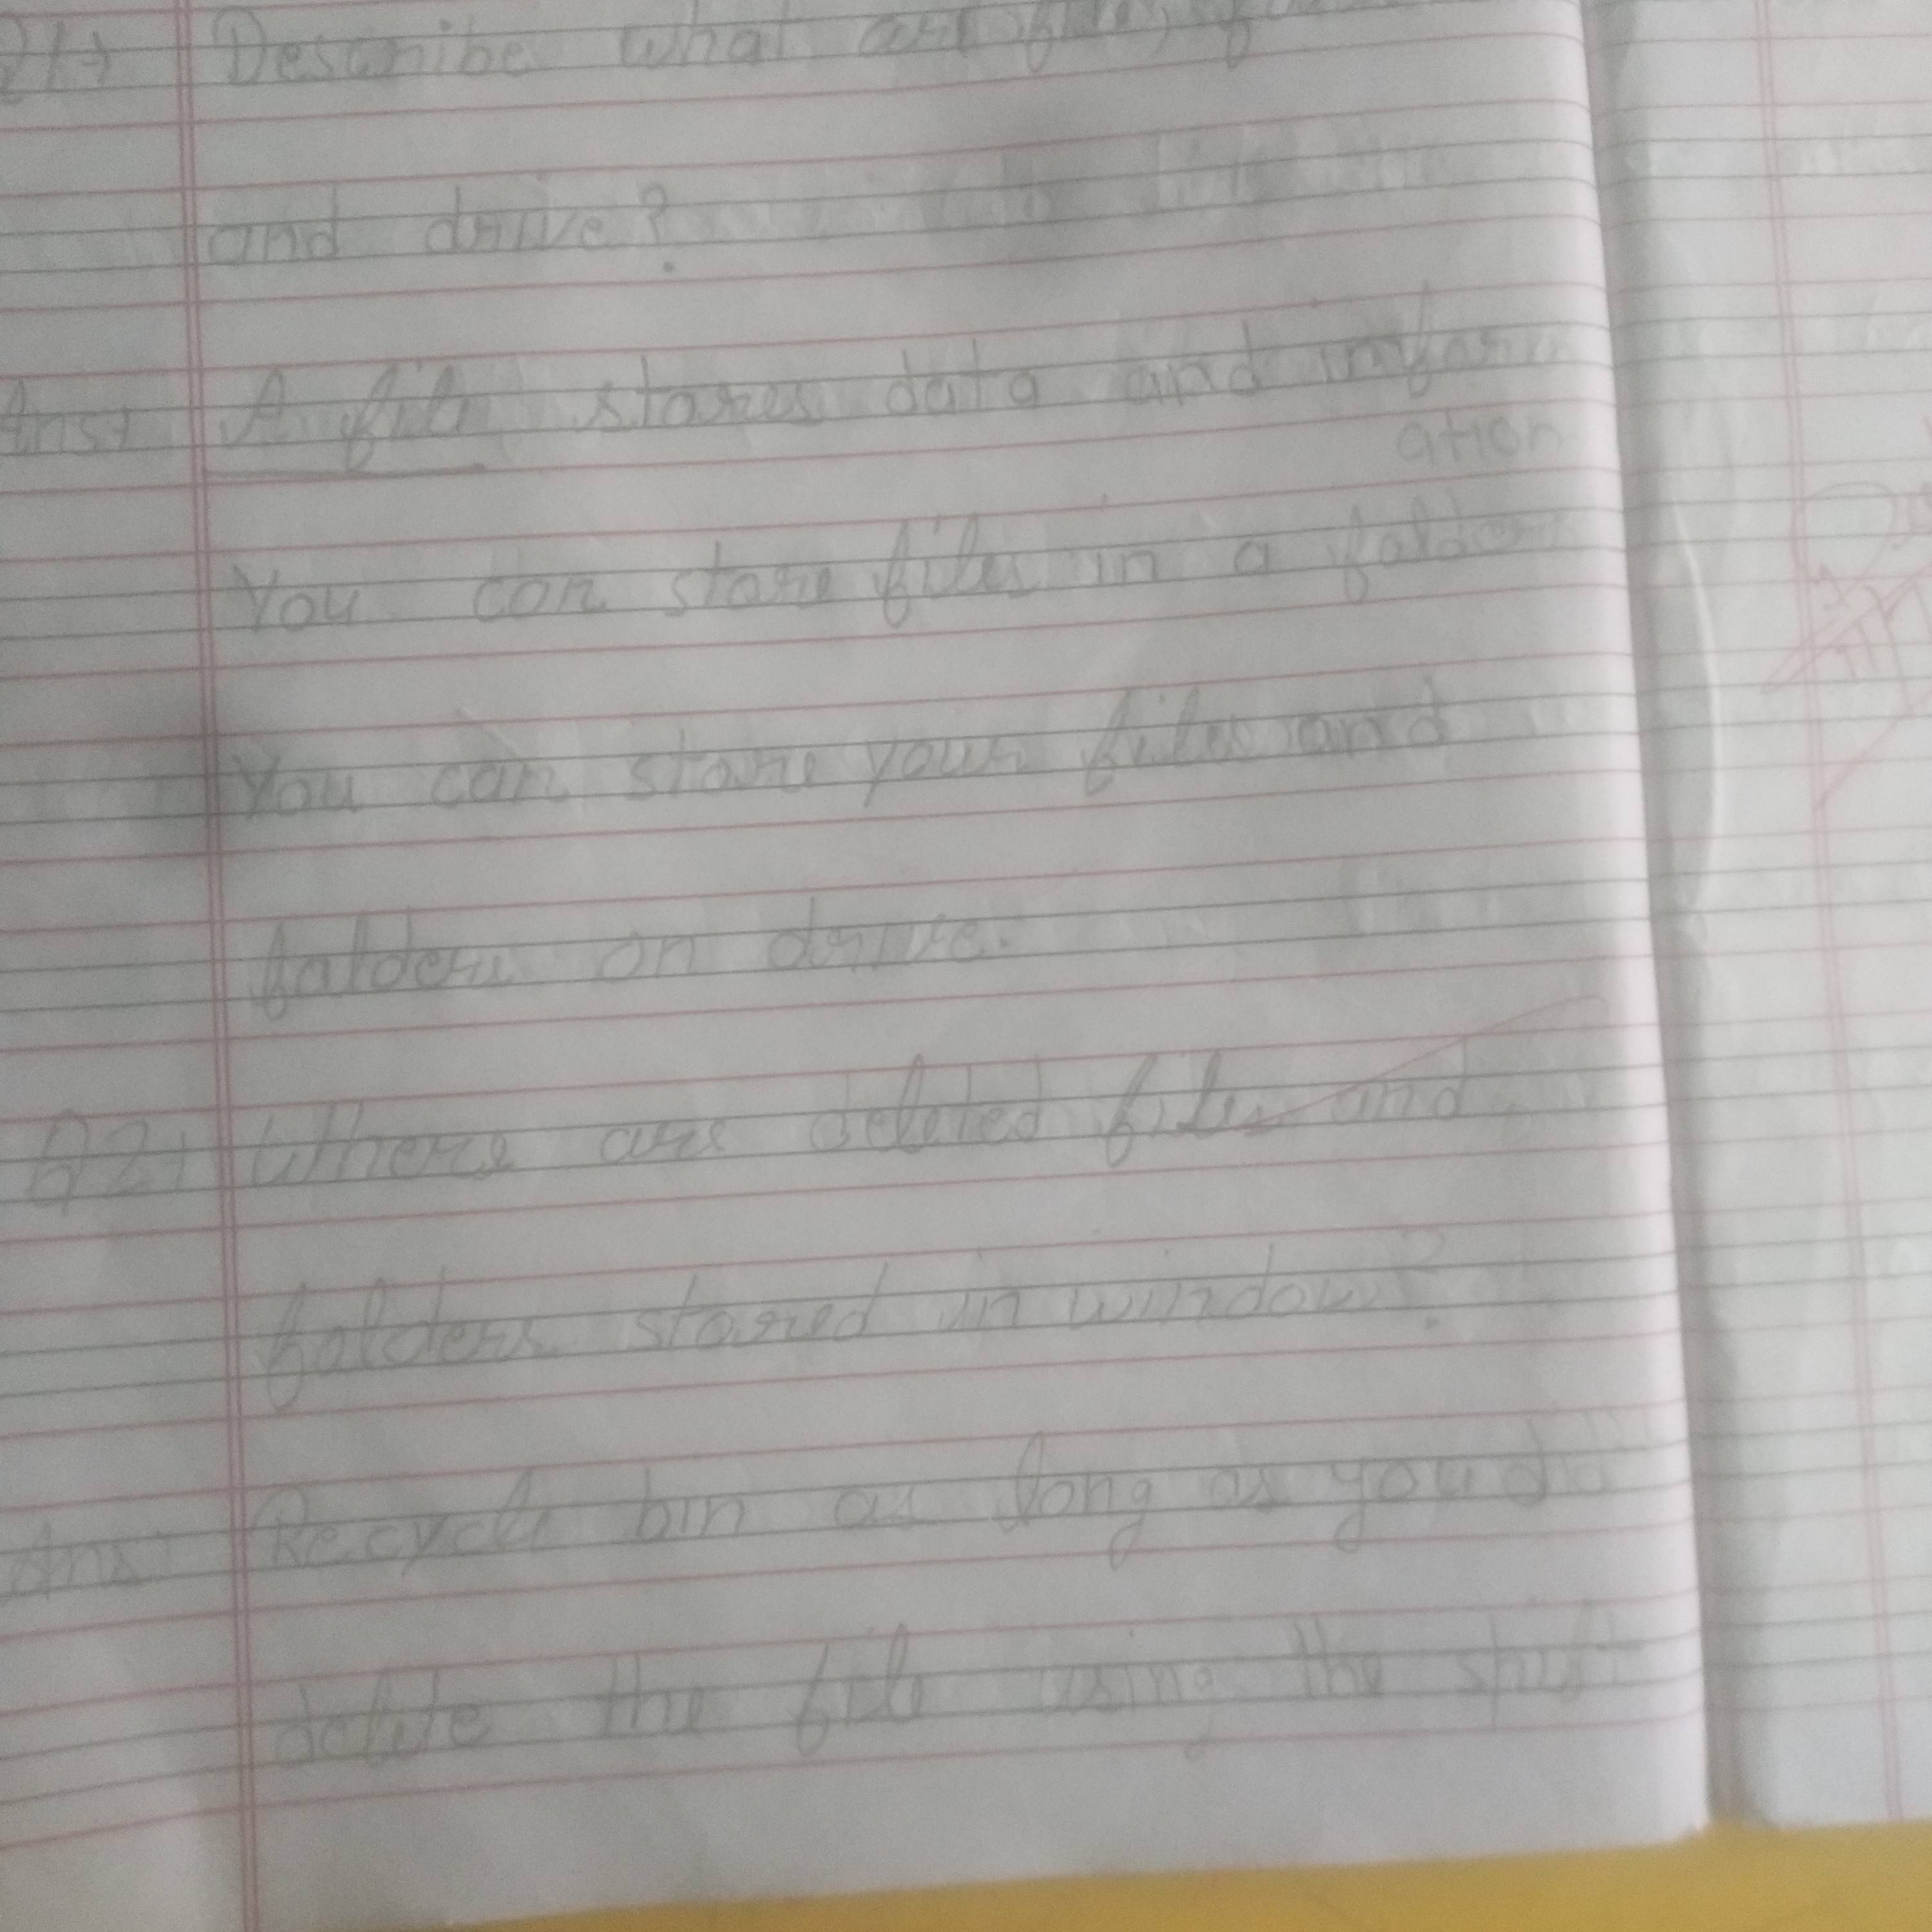 Q1→ Describe what are file,
and drive?
Ans→ A file stores data and inform
ation
You can store files in a folder
You can store your files and
folders on drive.
Q2→ Where are deleted files and
folders stored in window?
Ans→ Recycle bin as long as you
delete the file using the shift